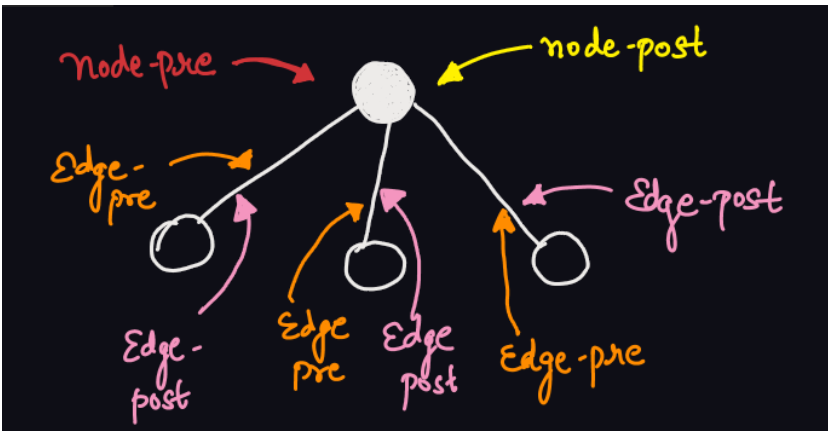 Node-pre
node-post
Edge-
pre
Edge-post
Edge-
post
Edge
pre
Edge
post
Edge-pre